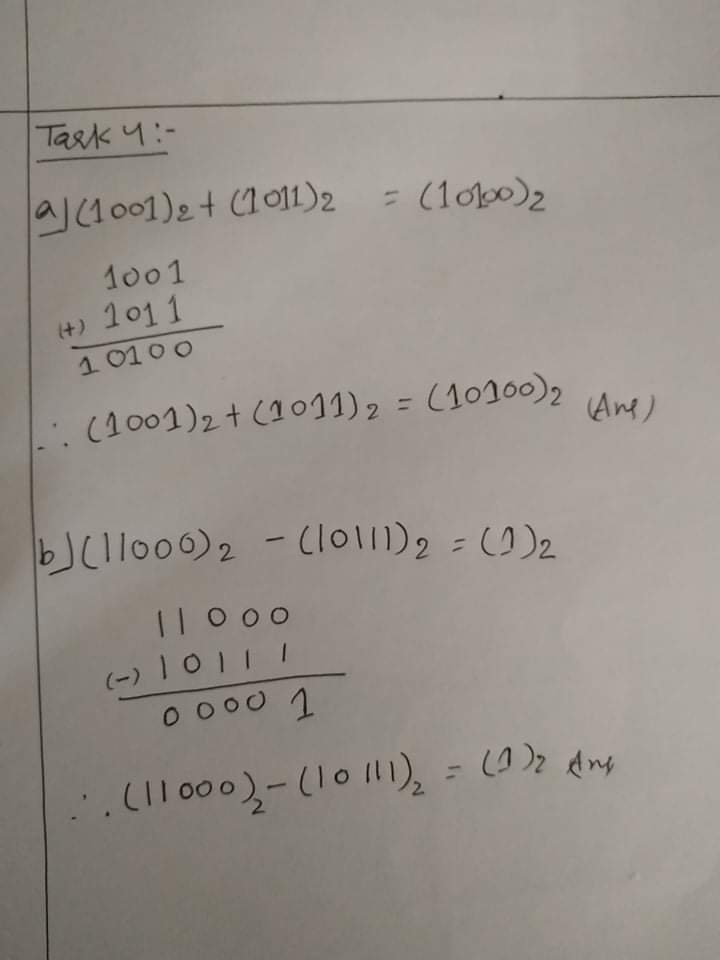 Task 4:-
a) (1001)2 + (1011)2 = (10100)2
1001
(+) 1011
10100
∴ (1001)2 + (1011)2 = (10100)2 (Ans)
b) (11000)2 - (10111)2 = (1)2
11000
(-) 10111
00001
∴ (11000)2 - (10111)2 = (1)2 Ans